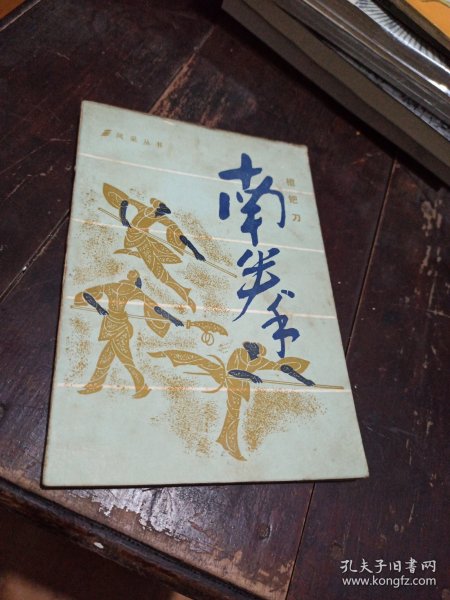 风采丛书
南拳
棍钯刀
孔夫子旧书网
www.kongfz.com